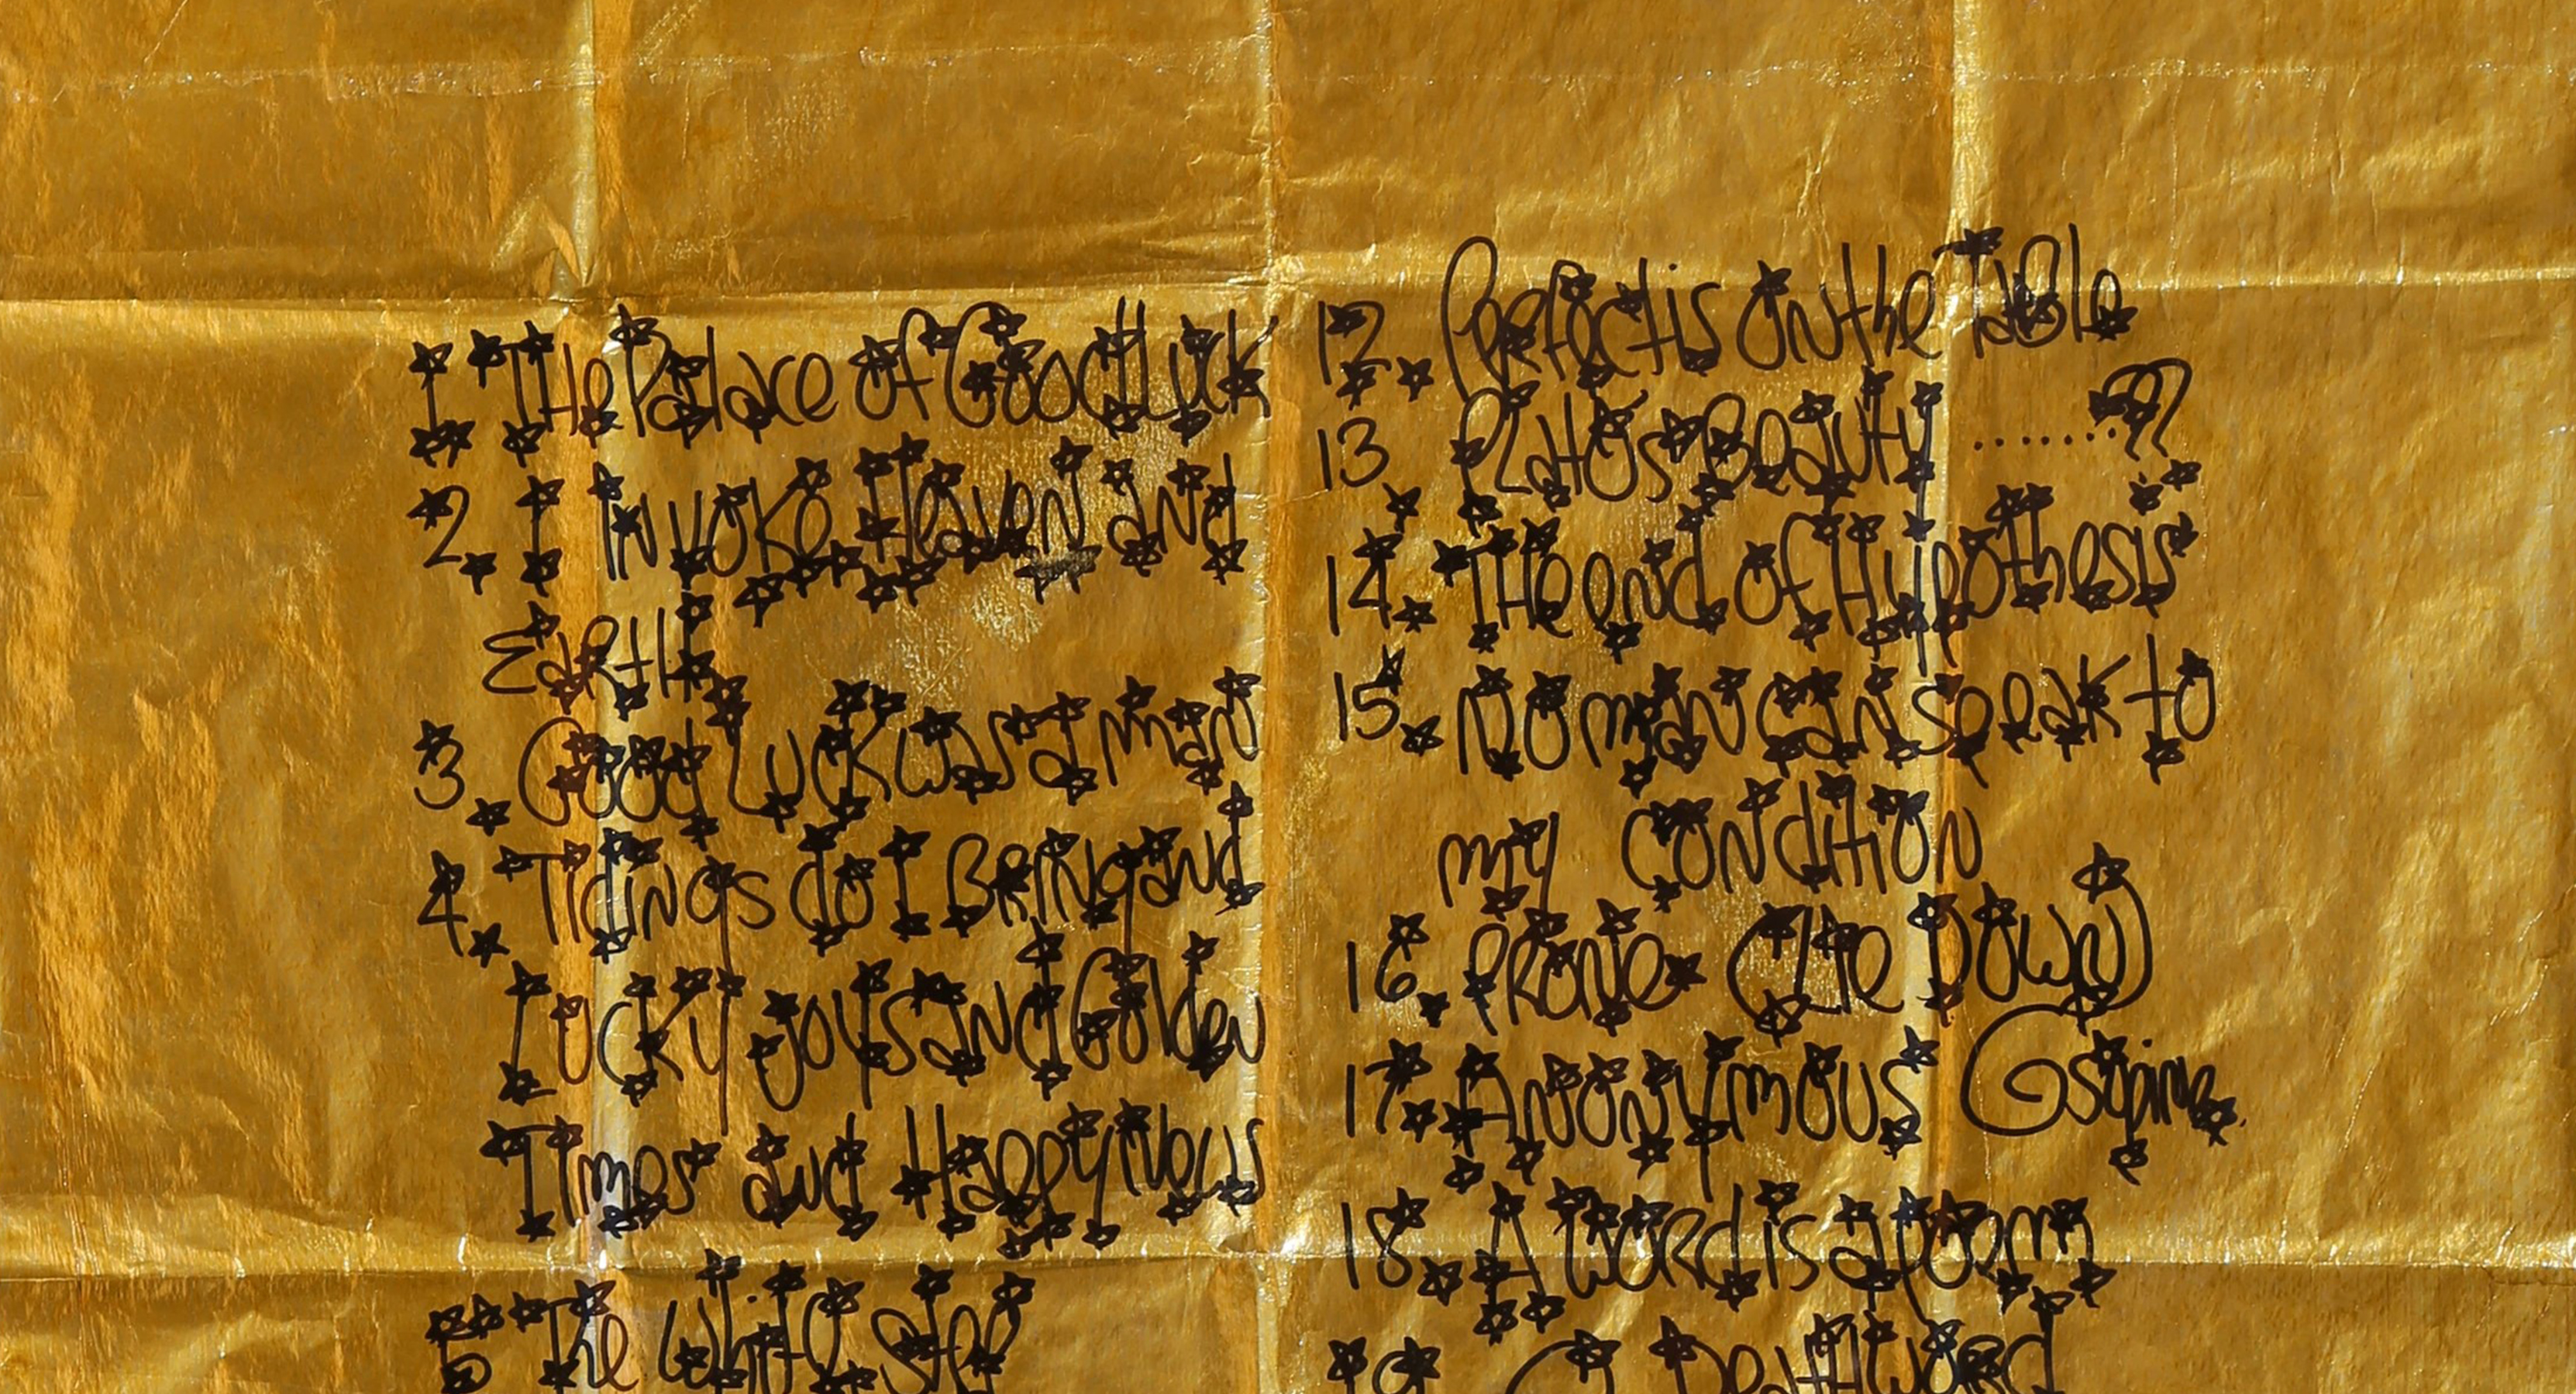 1 The Palace of Good Luck
2. I Invoke Heaven and
Earth
3. Good Luck was a man
4. Tidings do I Bring and
Lucky joys and Golden
Times and Happy News
5 The White Step
12. Perfect is on the Table
13 Platos Beauty ........?
14. The end of Hypothesis
15. No man can speak to
my condition
16. Prone (Lie Down)
17. Anonymous
18. A word is a poem
Death word